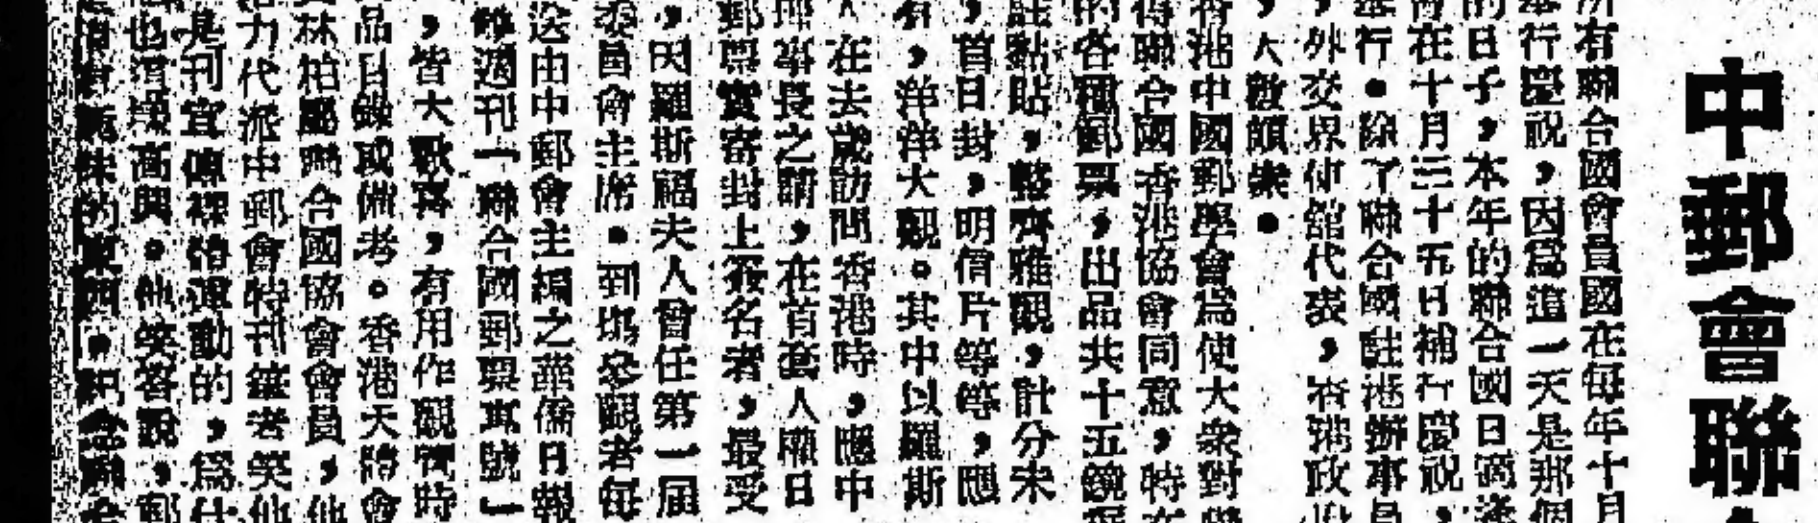 中郵會聯
所有聯合國會員國在每年十月
舉行慶祝，因爲這一天是那個
的日子，本年的聯合國日適逢
會在十月二十五日補行慶祝，
舉行。除了聯合國駐港辦事員
，外交界使舘代表，香港政府
，大
香港中國郵學會爲使大衆對
得聯合國香港協會同意，特在
的各種郵票，出品共十五鏡框
黏貼，整齊雅觀，計分未
，首日封，明信片等等，應
有，洋洋大觀。其中以羅斯
人在去歲訪問香港時，應中
理事長之請，在首套人權日
郵票實寄封上簽名者，最受
，因羅斯福夫人曾任第一届
委員會主席。到場參觀者每
送由中郵會主編之華僑日報
週刊「聯合國郵票專號」
，皆大歡喜，有用作觀覽時
品目錄或備考。香港天
林柏 聯合國協會會員，他
力代派中郵會特刊筆者笑他
是刊宣傳 運動的，爲什
也 高興。他笑答說，郵
的東西。紀念